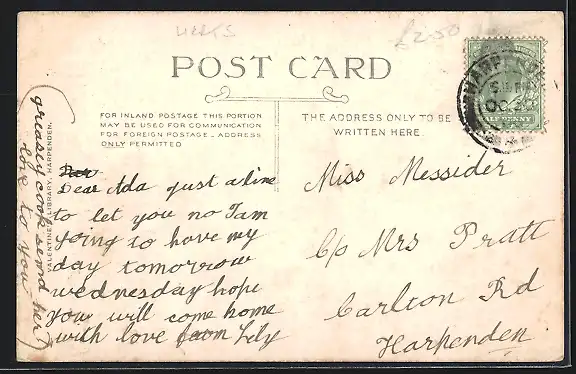 HERTS
£2.50
POST CARD
FOR INLAND POSTAGE THIS PORTION
MAY BE USED FOR COMMUNICATION
FOR FOREIGN POSTAGE - ADDRESS
ONLY PERMITTED
THE ADDRESS ONLY TO BE
WRITTEN HERE.
HARPENDEN
OC 23
HALF PENNY
Dear
Dear Ada just a line
to let you no I am
going to have my
day tomorrow
wednesday hope
you will come home
with love from Lily
Miss Messider
C/o Mrs Pratt
Carlton Rd
Harpenden
VALENTINE'S LIBRARY, HARPENDEN.
greasly cook send her
love to you